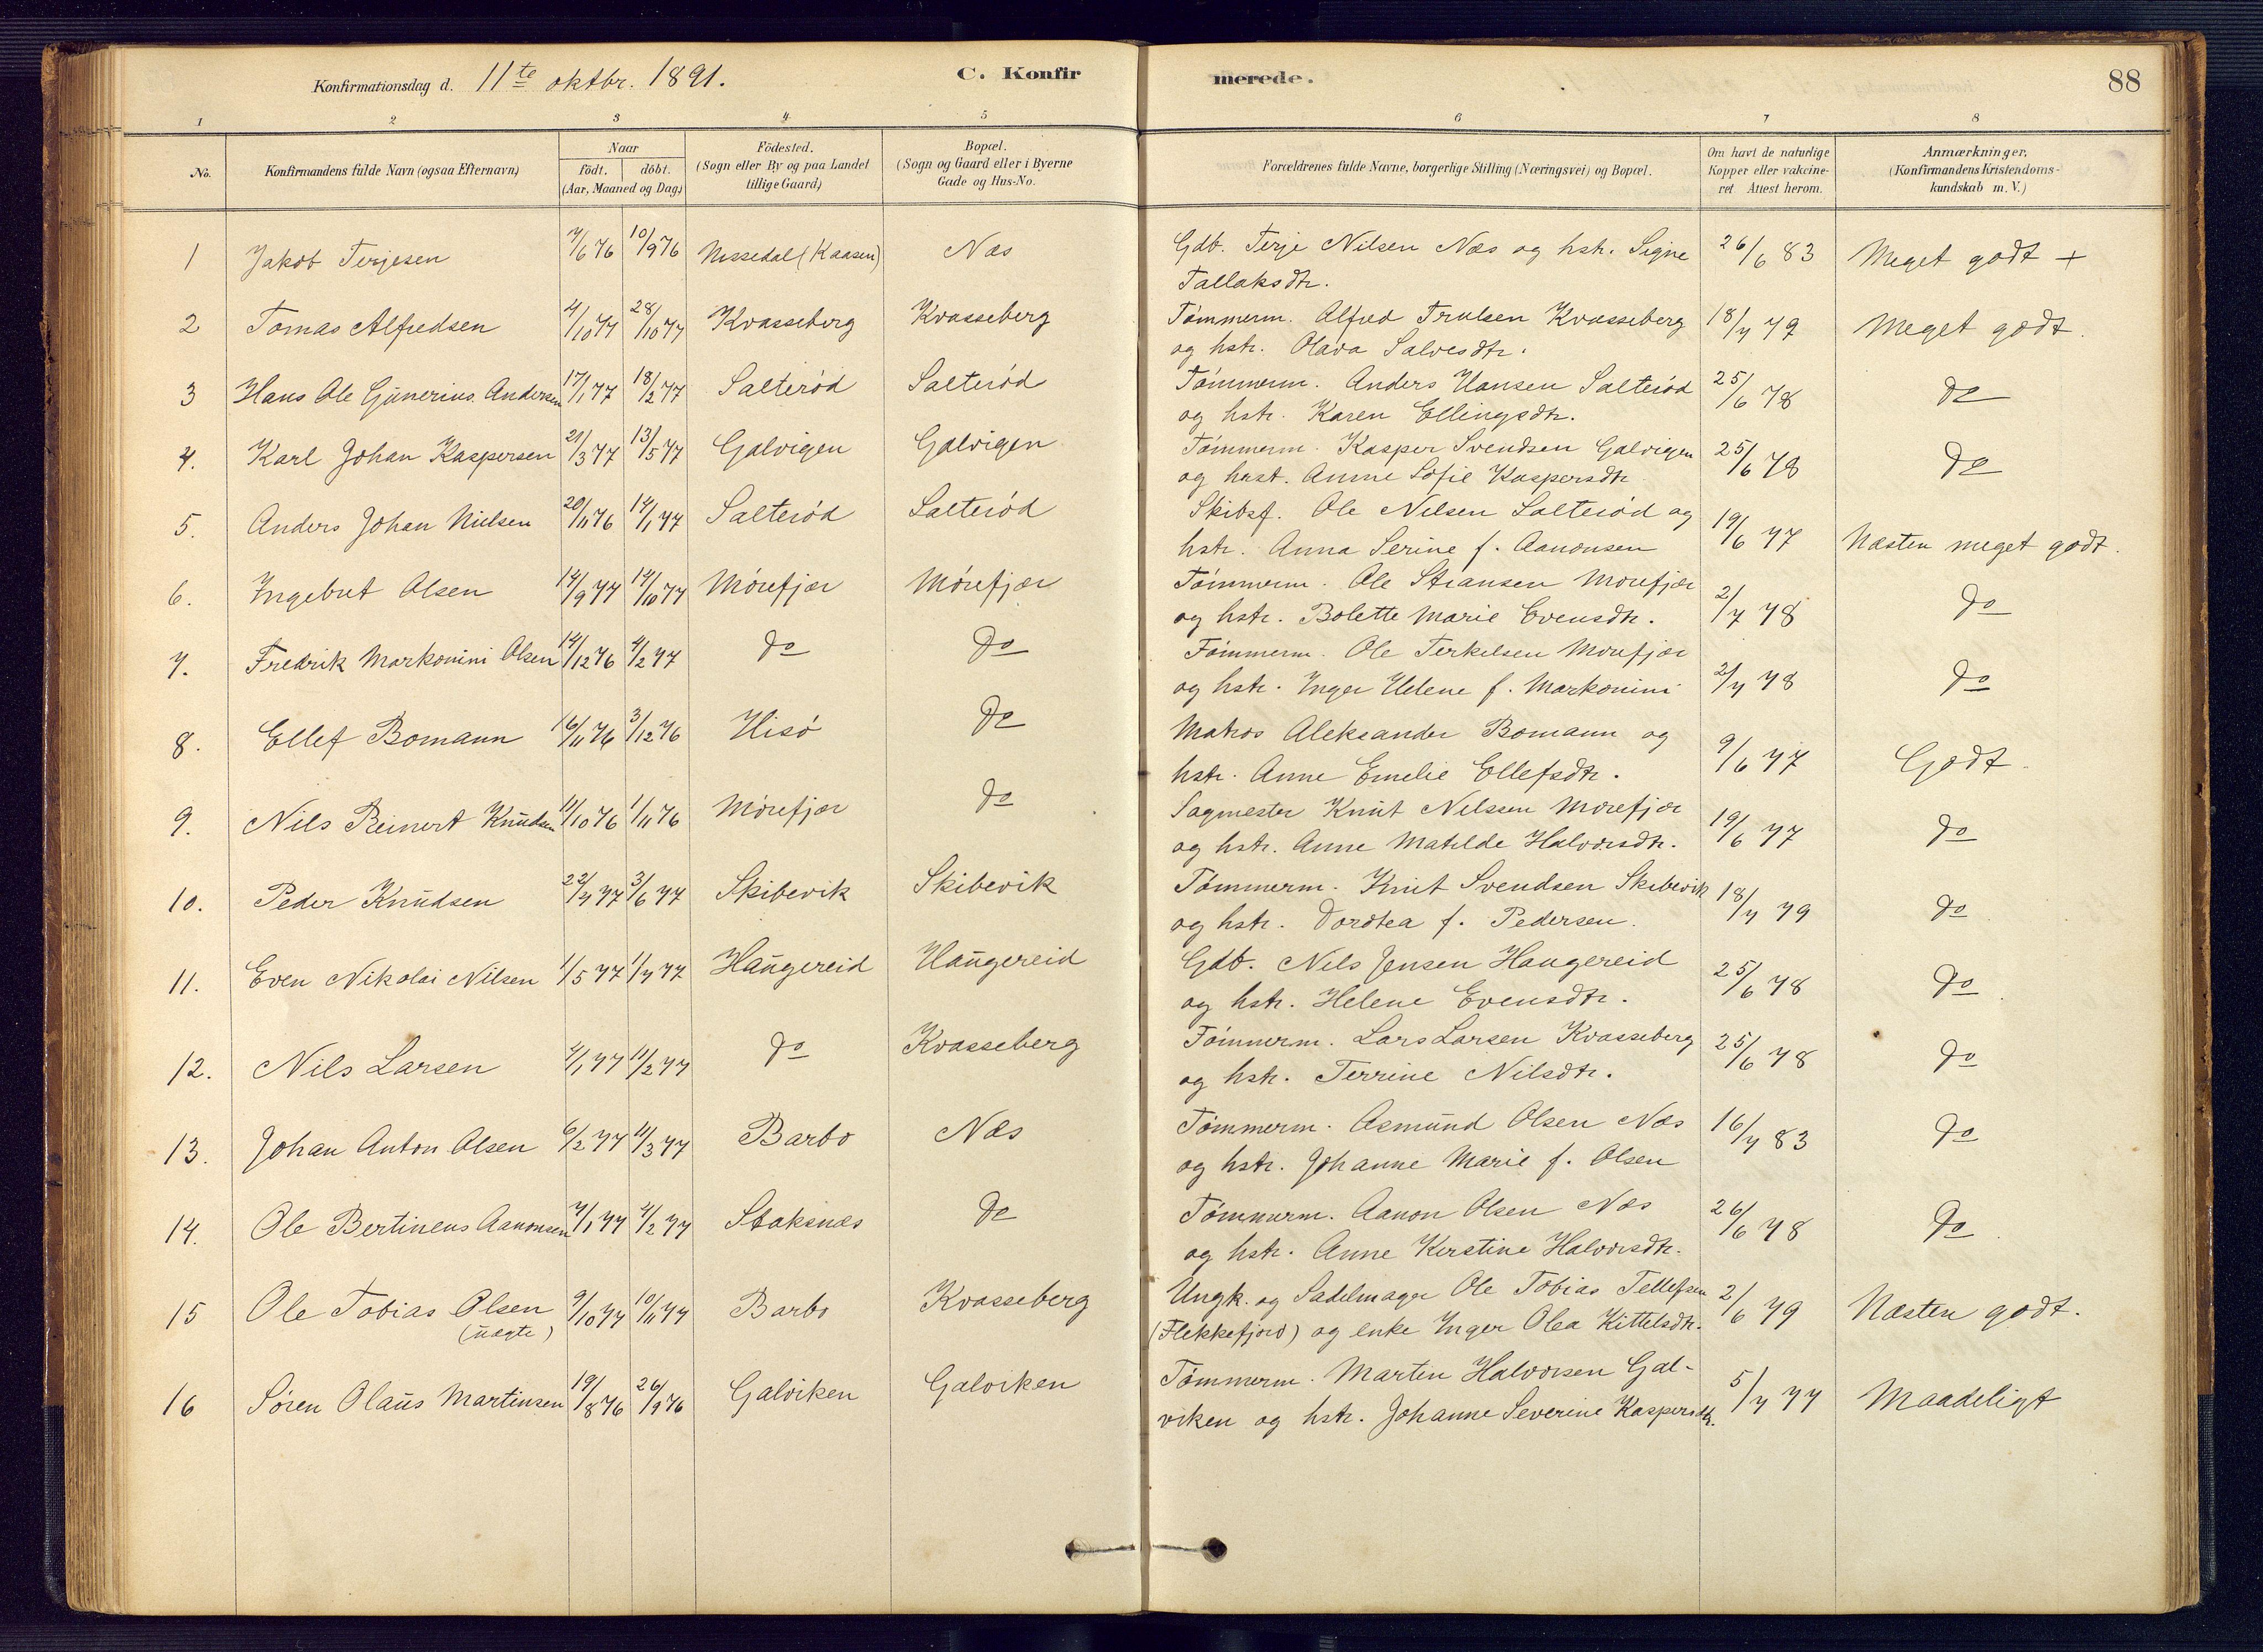 Konfirmationsdag d. 11te oktbr. 1891. C. Konfirmerede. 88
1 2 3 4 5 6 7 8
No. Konfirmandens fulde Navn (ogsaa Efternavn) Naar födt. döbt. (Aar, Maaned og Dag.) Födested. (Sogn eller By og paa Landet tillige Gaard) Bopæl. (Sogn og Gaard eller i Byerne Gade og Hus-No. Forældrenes fulde Navne, borgerlige Stilling (Næringsvei) og Bopæl. Om havt de naturlige Kopper eller vakcineret Attest herom. Anmærkninger. (Konfirmandens Kristendomskundskab m. V.)
1 Jakob Terjesen 7/6 76 10/9 76 Nissedal (Kaasen) Næs Gdb. Terje Nilsen Næs og hstr. Signe 26/6 83 Meget godt +
Tallaksdtr.
2 Tomas Alfredsen 4/10 77 28/10 77 Kvasseberg Kvasseberg Tømmerm. Alfred Trulsen Kvasseberg 18/7 79 Meget godt.
og hstr. Olava Salvesdtr.
3 Hans Ole Gunerius Andersen 17/1 77 18/2 77 Salterød Salterød Tømmerm. Anders Hansen Salterød 25/6 78 do
og hstr. Karen Ellingsdtr.
4. Karl Johan Kaspersen 21/3 77 13/5 77 Galvigen Galvigen Tømmerm. Kasper Svendsen Galvigen 25/6 78 do
og hust. Anne Sofie Kaspersdtr
5. Anders Johan Nielsen 20/11 76 14/1 77 Salterød Salterød Skibsf. Ole Nilsen Salterød og 19/6 77 Næsten meget godt.
hstr. Anna Serine f. Aanonsen
6. Ingebret Olsen 14/9 77 14/10 77 Mørefjær Mørefjær Tømmerm. Ole Stiansen Mørefjær 2/7 78 do
og hstr. Bolette Marie Evensdtr.
7. Fredrik Markonini Olsen 14/12 76 4/2 77 do do Tømmerm. Ole Terkelsen Mørefjær 2/7 78 do
og hstr. Inger Helene f. Markonini
8. Ellef Bomann 16/11 76 3/12 76 Hisø do Matros Aleksander Bomann og 9/6 77 Godt.
hstr. Anne Emelie Ellefsdtr.
9. Nils Reinert Knudsen 11/10 76 1/11 76 Mørefjær do Sagmester Knut Nilssen Mørefjær 19/6 77 do
og hstr. Anne Matilde Halvorsdtr.
10. Peder Knudsen 22/4 77 3/6 77 Skibevik Skibevik Tømmerm. Knut Svendsen Skibevik 18/7 79 do
og hstr. Dordtea f. Pedersen.
11. Even Nikolai Nilsen 1/5 77 1/7 77 Haugereid Haugereid Gdb. Nils Jensen Haugereid 25/6 78 do
og hstr. Helene Evensdtr.
12. Nils Larsen 4/1 77 11/2 77 do Kvasseberg Tømmerm. Lars Larsen Kvasseberg 25/6 78 do
og hstr. Terrine Nilsdtr.
13. Johan Anton Olsen 6/2 77 11/3 77 Barbo Næs Tømmerm. Asmund Olsen Næs 16/7 83 do
og hstr. Johanne Marie f. Olsen
14. Ole Bertinens Aanonsen 7/1 77 4/2 77 Staksnæs do Tømmerm. Aanon Olsen Næs 26/6 78 do
og hstr. Anne Kirstine Halvorsdtr.
15 Ole Tobias Olsen 9/10 77 10/11 77 Barbo Kvasseberg Ungk. og Sadelmager Ole Tobias Tellefsen 2/6 79 Næsten godt.
(uægte) (Flekkefjord) og enke Inger Olea Kittelsdtr.
16 Søren Olaus Martinsen 19/8 76 26/9 76 Galviken Galviken Tømmerm. Martin Halvorsen Gal- 5/7 77 Maadeligt
viken og hstr. Johanne Severine Kaspersdtr.